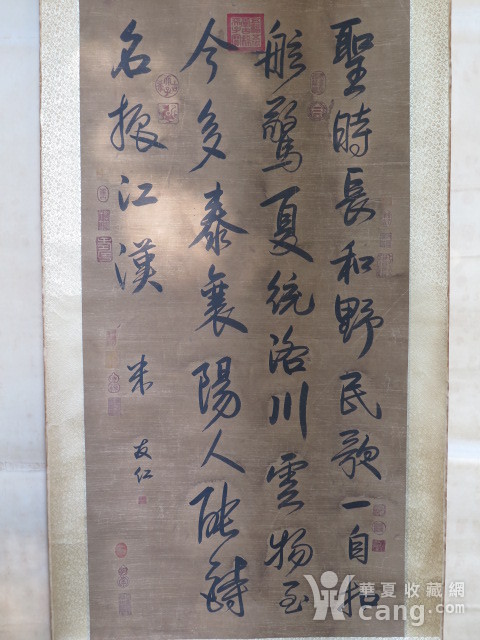 聖時長和野民歌一自扣
舷驚夏統洛川雲物至
今多泰襄陽人能詩
名振江漢
米友仁
華夏收藏網
cang.com